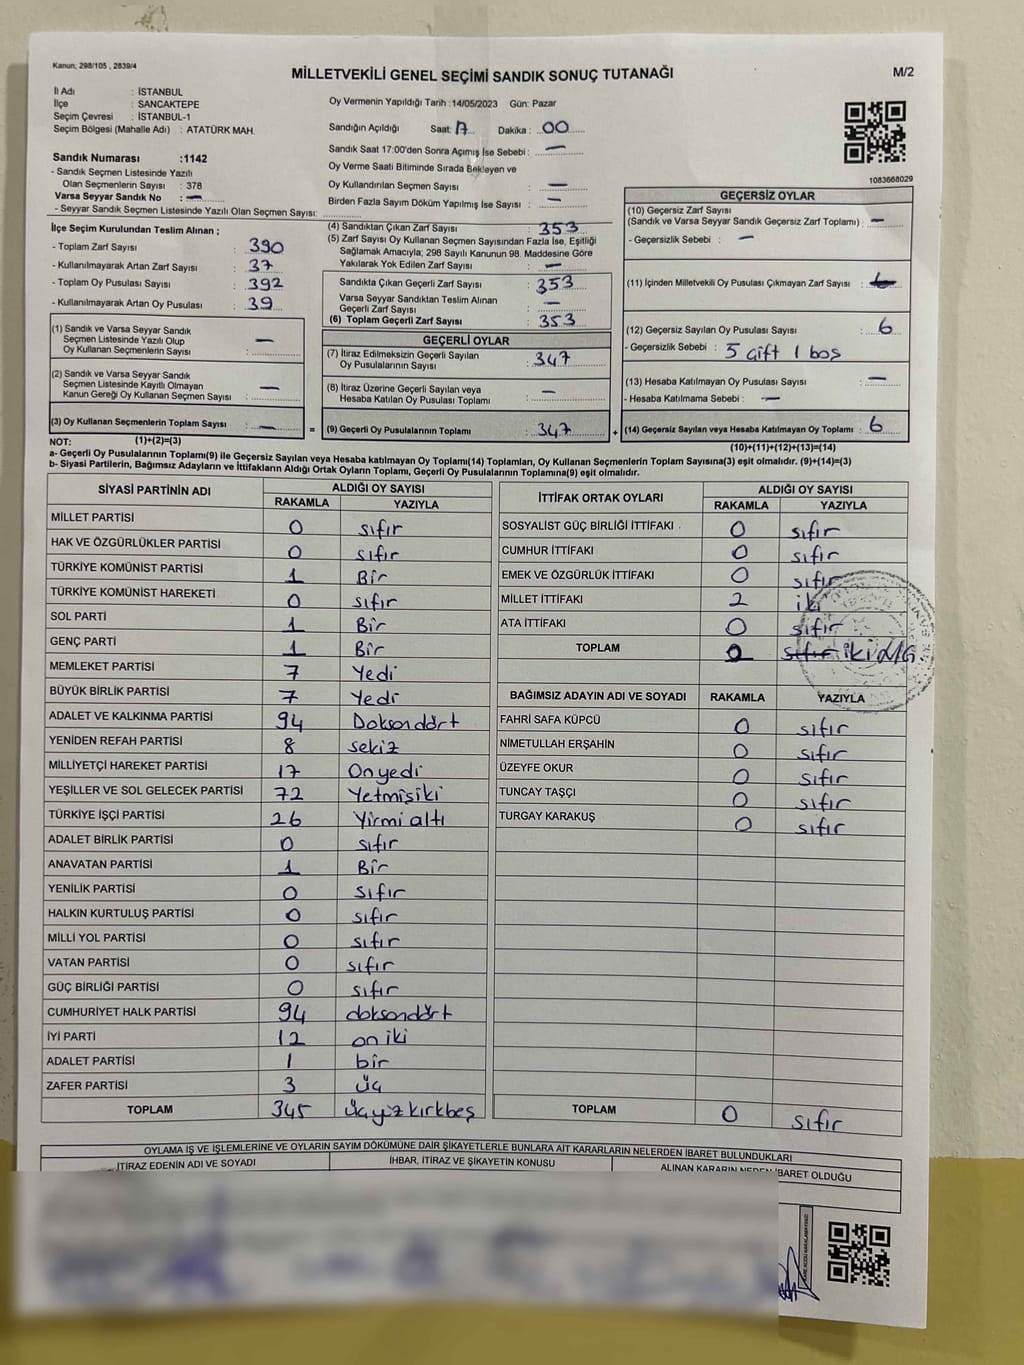 Kanun, 298/105 , 2839/4
MİLLETVEKİLİ GENEL SEÇİMİ SANDIK SONUÇ TUTANAĞI
M/2
İl Adı : İSTANBUL
İlçe : SANCAKTEPE
Seçim Çevresi : İSTANBUL-1
Seçim Bölgesi (Mahalle Adı) : ATATÜRK MAH.
Sandık Numarası :1142
- Sandık Seçmen Listesinde Yazılı
Olan Seçmenlerin Sayısı : 378
Varsa Seyyar Sandık No : —
- Seyyar Sandık Seçmen Listesinde Yazılı Olan Seçmen Sayısı:
İlçe Seçim Kurulundan Teslim Alınan ;
- Toplam Zarf Sayısı : 390
- Kullanılmayarak Artan Zarf Sayısı : 37
- Toplam Oy Pusulası Sayısı : 392
- Kullanılmayarak Artan Oy Pusulası : 39
(1) Sandık ve Varsa Seyyar Sandık
Seçmen Listesinde Yazılı Olup
Oy Kullanan Seçmenlerin Sayısı : —
(2) Sandık ve Varsa Seyyar Sandık
Seçmen Listesinde Kayıtlı Olmayan
Kanun Gereği Oy Kullanan Seçmen Sayısı : —
(3) Oy Kullanan Seçmenlerin Toplam Sayısı : —
Oy Vermenin Yapıldığı Tarih :14/05/2023 Gün: Pazar
Sandığın Açıldığı Saat: 17 Dakika : 00
Sandık Saat 17:00'den Sonra Açımış İse Sebebi : —
Oy Verme Saati Bitiminde Sırada Bekleyen ve
Oy Kullandırılan Seçmen Sayısı : —
Birden Fazla Sayım Döküm Yapılmış İse Sayısı : —
(4) Sandıktan Çıkan Zarf Sayısı : 353
(5) Zarf Sayısı Oy Kullanan Seçmen Sayısından Fazla İse, Eşitliği
Sağlamak Amacıyla; 298 Sayılı Kanunun 98. Maddesine Göre
Yakılarak Yok Edilen Zarf Sayısı : —
Sandıkta Çıkan Geçerli Zarf Sayısı : 353
Varsa Seyyar Sandıktan Teslim Alınan
Geçerli Zarf Sayısı : —
(6) Toplam Geçerli Zarf Sayısı : 353
GEÇERLİ OYLAR
(7) İtiraz Edilmeksizin Geçerli Sayılan
Oy Pusulalarının Sayısı : 347
(8) İtiraz Üzerine Geçerli Sayılan veya
Hesaba Katılan Oy Pusulası Toplamı : —
= (9) Geçerli Oy Pusulalarının Toplamı : 347
1083668029
GEÇERSİZ OYLAR
(10) Geçersiz Zarf Sayısı
(Sandık ve Varsa Seyyar Sandık Geçersiz Zarf Toplamı) : —
- Geçersizlik Sebebi : —
(11) İçinden Milletvekili Oy Pusulası Çıkmayan Zarf Sayısı : 6
(12) Geçersiz Sayılan Oy Pusulası Sayısı : 6
- Geçersizlik Sebebi : 5 çift 1 boş
(13) Hesaba Katılmayan Oy Pusulası Sayısı : —
- Hesaba Katılmama Sebebi : —
+ (14) Geçersiz Sayılan veya Hesaba Katılmayan Oy Toplamı : 6
NOT: (1)+(2)=(3) (10)+(11)+(12)+(13)=(14)
a- Geçerli Oy Pusulalarının Toplamı(9) ile Geçersiz Sayılan veya Hesaba katılmayan Oy Toplamı(14) Toplamları, Oy Kullanan Seçmenlerin Toplam Sayısına(3) eşit olmalıdır. (9)+(14)=(3)
b- Siyasi Partilerin, Bağımsız Adayların ve İttifakların Aldığı Ortak Oyların Toplamı, Geçerli Oy Pusulalarının Toplamına(9) eşit olmalıdır.
SİYASİ PARTİNİN ADI ALDIĞI OY SAYISI
RAKAMLA YAZIYLA
MİLLET PARTİSİ 0 sıfır
HAK VE ÖZGÜRLÜKLER PARTİSİ 0 sıfır
TÜRKİYE KOMÜNİST PARTİSİ 1 Bir
TÜRKİYE KOMÜNİST HAREKETİ 0 sıfır
SOL PARTİ 1 Bir
GENÇ PARTİ 1 Bir
MEMLEKET PARTİSİ 7 Yedi
BÜYÜK BİRLİK PARTİSİ 7 Yedi
ADALET VE KALKINMA PARTİSİ 94 Doksandört
YENİDEN REFAH PARTİSİ 8 sekiz
MİLLİYETÇİ HAREKET PARTİSİ 17 Onyedi
YEŞİLLER VE SOL GELECEK PARTİSİ 72 Yetmişiki
TÜRKİYE İŞÇİ PARTİSİ 26 Yirmi altı
ADALET BİRLİK PARTİSİ 0 sıfır
ANAVATAN PARTİSİ 1 Bir
YENİLİK PARTİSİ 0 sıfır
HALKIN KURTULUŞ PARTİSİ 0 sıfır
MİLLİ YOL PARTİSİ 0 sıfır
VATAN PARTİSİ 0 sıfır
GÜÇ BİRLİĞİ PARTİSİ 0 sıfır
CUMHURİYET HALK PARTİSİ 94 doksandört
İYİ PARTİ 12 on iki
ADALET PARTİSİ 1 bir
ZAFER PARTİSİ 3 üç
TOPLAM 345 üçyüzkırkbeş
İTTİFAK ORTAK OYLARI ALDIĞI OY SAYISI
RAKAMLA YAZIYLA
SOSYALIST GÜÇ BİRLİĞİ İTTİFAKI 0 sıfır
CUMHUR İTTİFAKI 0 sıfır
EMEK VE ÖZGÜRLÜK İTTİFAKI 0 sıfır
MİLLET İTTİFAKI 2 iki
ATA İTTİFAKI 0 sıfır
TOPLAM 2 sıfır iki
BAĞIMSIZ ADAYIN ADI VE SOYADI RAKAMLA YAZIYLA
FAHRİ SAFA KÜPCÜ 0 sıfır
NİMETULLAH ERŞAHİN 0 sıfır
ÜZEYFE OKUR 0 sıfır
TUNCAY TAŞÇI 0 sıfır
TURGAY KARAKUŞ 0 sıfır
TOPLAM 0 sıfır
OYLAMA İŞ VE İŞLEMLERİNE VE OYLARIN SAYIM DÖKÜMÜNE DAİR ŞİKAYETLERLE BUNLARA AİT KARARLARIN NELERDEN İBARET BULUNDUKLARI
İTİRAZ EDENİN ADI VE SOYADI İHBAR, İTİRAZ VE ŞİKAYETİN KONUSU ALINAN KARARIN NEDEN İBARET OLDUĞU